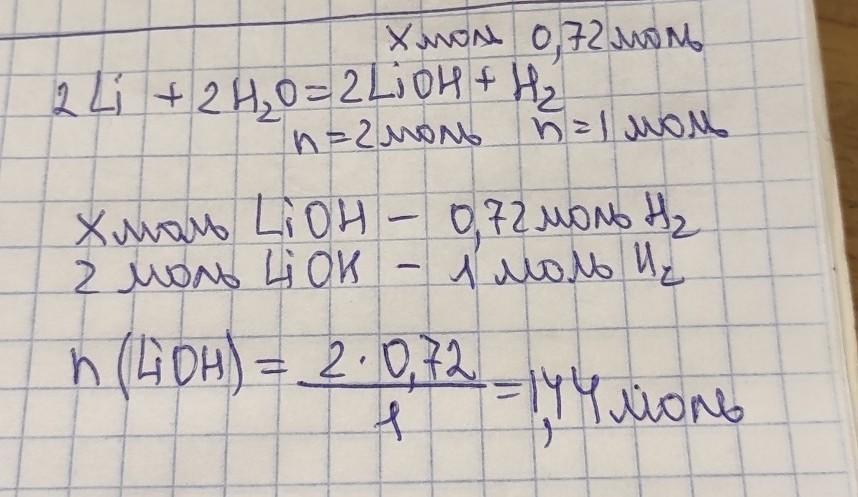 х моль 0,72 моль
2Li + 2H₂O = 2LiOH + H₂
n = 2 моль n = 1 моль
х моль LiOH – 0,72 моль H₂
2 моль LiOH – 1 моль H₂
n (LiOH) = 2 · 0,72 / 1 = 1,44 моль